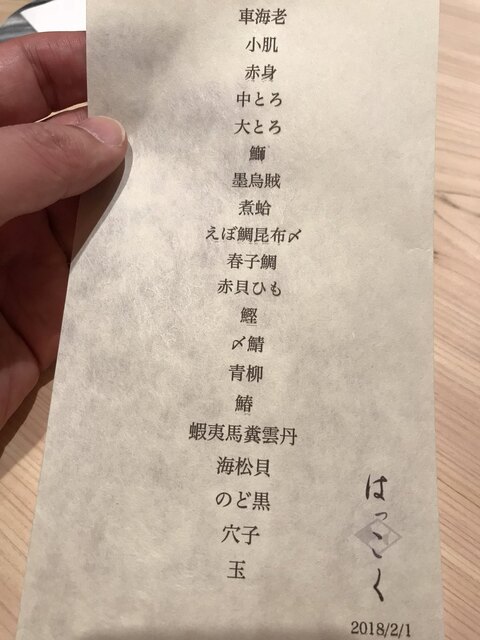 車海老
小肌
赤身
中とろ
大とろ
鰤
墨烏賊
煮蛤
えぼ鯛昆布〆
春子鯛
赤貝ひも
鰹
〆鯖
青柳
鰆
蝦夷馬糞雲丹
海松貝
のど黒
穴子
玉
はっこく
2018/2/1